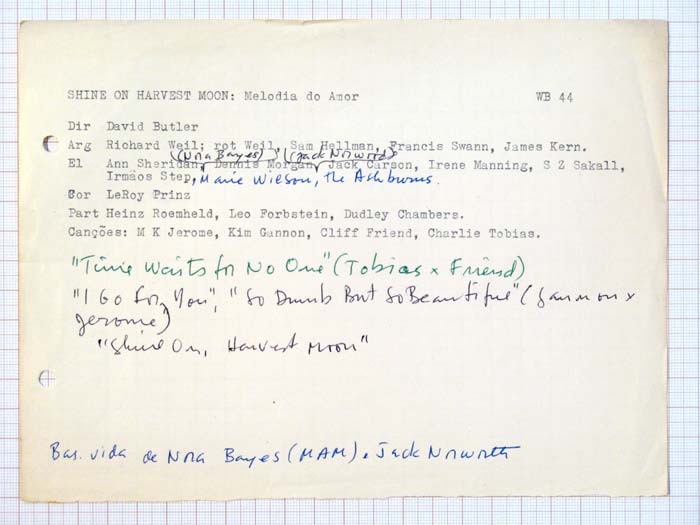 SHINE ON HARVEST MOON: Melodia do Amor WB 44
Dir David Butler
Arg Richard Weil; rot Weil, Sam Hellman, Francis Swann, James Kern.
(Nora Bayes) (Jack Norworth)
El Ann Sheridan, Dennis Morgan, Jack Carson, Irene Manning, S Z Sakall,
Irmãos Step, Marie Wilson, the Ashburns.
Cor LeRoy Prinz
Part Heinz Roemheld, Leo Forbstein, Dudley Chambers.
Canções: M K Jerome, Kim Gannon, Cliff Friend, Charlie Tobias.
"Time Waits for No One" (Tobias x Friend)
"I Go for You", "So Dumb But So Beautiful" (Gannon x
Jerome)
"Shine On, Harvest Moon"
Bas. vida de Nora Bayes (MAM) e Jack Norworth